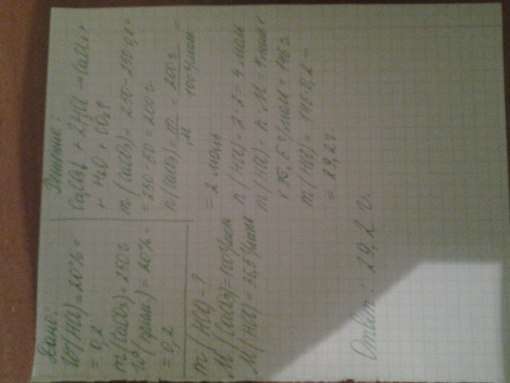 Дано:
W(HCl)=20%=
=0,2
m(CaCO3)-250г
W(прим.)=20%=
=0,2
m(HCl)-?
M(CaCO3)=100г/моль
M(HCl)=36,5г/моль
Решение:
CaCO3+2HCl→CaCl2+
+H2O+CO2↑
m(CaCO3)=250-250·0,2=
=250-50=200г
n(CaCO3)=m/M=200г/100г/моль
=2 моль
n(HCl)=2·2=4 моль
m(HCl)=n·M=4моль·
·36,5г/моль=146г
m(HCl)=146·0,2=
=29,2г.
Ответ: 29,2г.